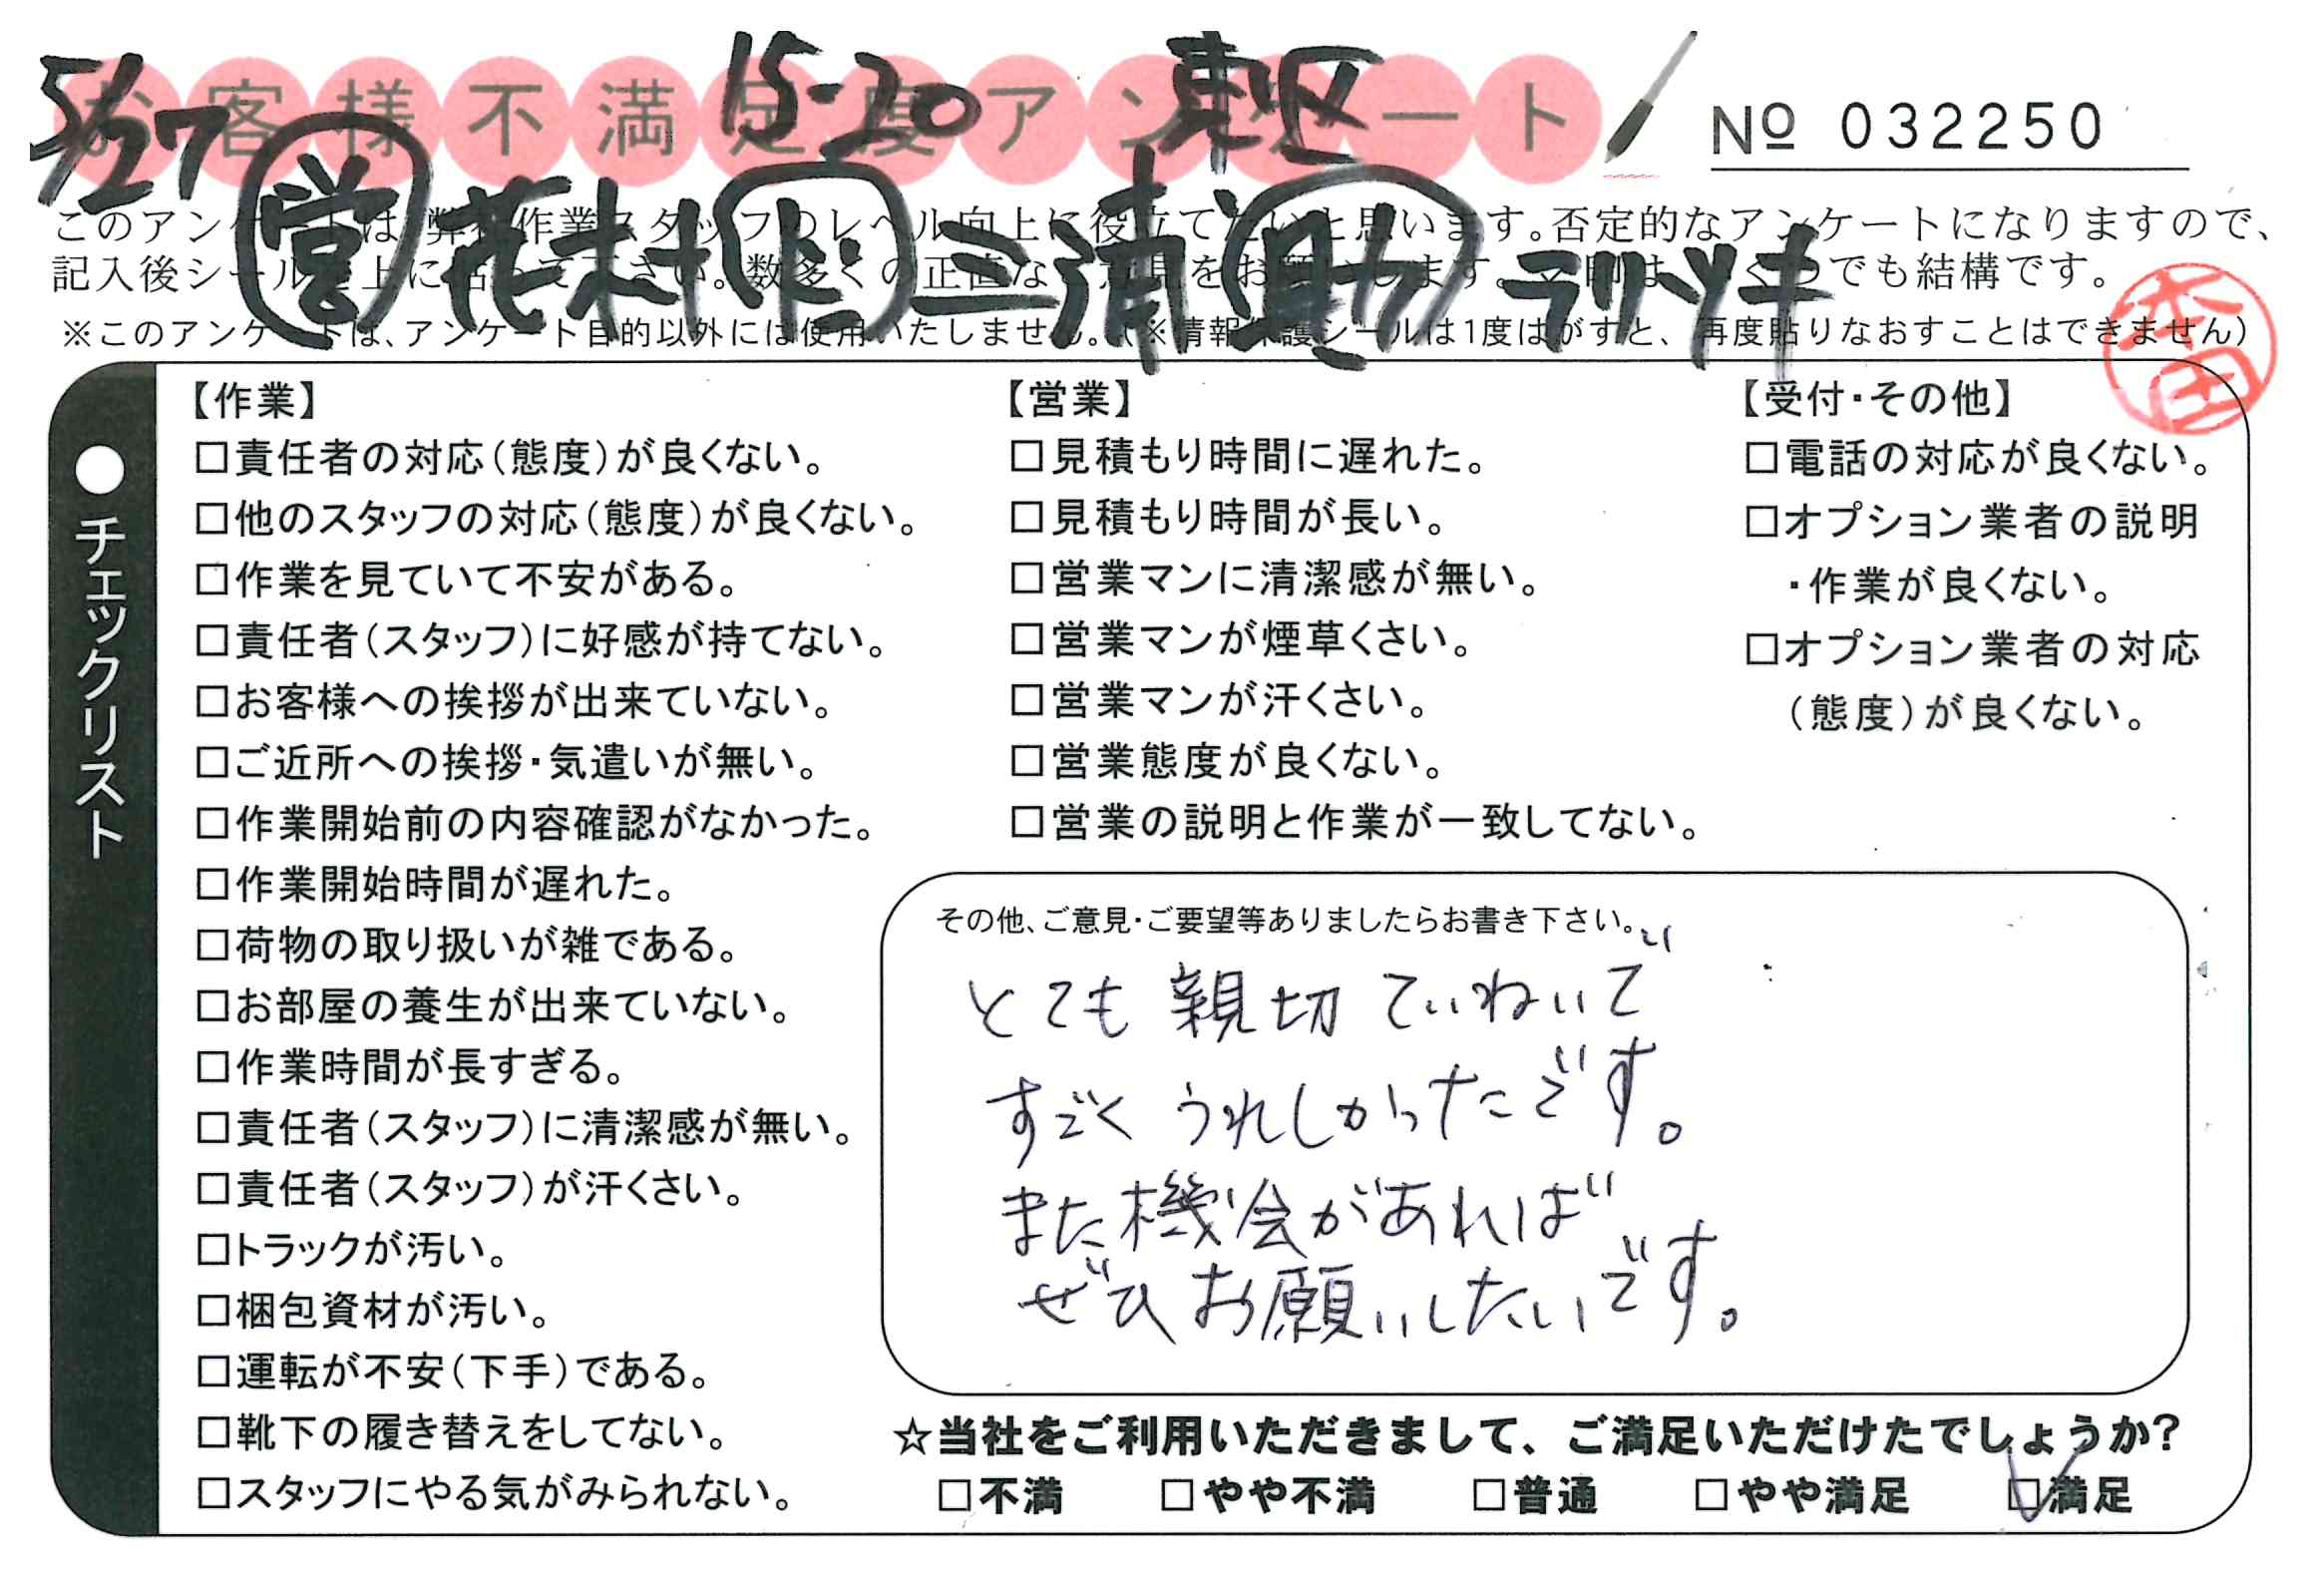 お客様不満足度アンケート
5/27 15-20 東区
№ 032250
営 花村 ド 三浦 助 ラリツキ
このアンケートは、弊社作業スタッフのレベル向上に役立てたいと思います。否定的なアンケートになりますので、
記入後シールを上に貼って下さい。数多くの正直な
でも結構です。
※このアンケートは、アンケート目的以外には使用いたしません。(※情報保護シールは1度はがすと、再度貼りなおすことはできません)
本田
●チェックリスト
【作業】
□責任者の対応(態度)が良くない。
□他のスタッフの対応(態度)が良くない。
□作業を見ていて不安がある。
□責任者(スタッフ)に好感が持てない。
□お客様への挨拶が出来ていない。
□ご近所への挨拶・気遣いが無い。
□作業開始前の内容確認がなかった。
□作業開始時間が遅れた。
□荷物の取り扱いが雑である。
□お部屋の養生が出来ていない。
□作業時間が長すぎる。
□責任者(スタッフ)に清潔感が無い。
□責任者(スタッフ)が汗くさい。
□トラックが汚い。
□梱包資材が汚い。
□運転が不安(下手)である。
□靴下の履き替えをしてない。
□スタッフにやる気がみられない。
【営業】
□見積もり時間に遅れた。
□見積もり時間が長い。
□営業マンに清潔感が無い。
□営業マンが煙草くさい。
□営業マンが汗くさい。
□営業態度が良くない。
□営業の説明と作業が一致してない。
【受付・その他】
□電話の対応が良くない。
□オプション業者の説明
・作業が良くない。
□オプション業者の対応
(態度)が良くない。
その他、ご意見・ご要望等ありましたらお書き下さい。
とても親切ていねいで
すごくうれしかったです。
また機会があれば
ぜひお願いしたいです。
☆当社をご利用いただきまして、ご満足いただけたでしょうか?
□不満 □やや不満 □普通 □やや満足 ☑満足